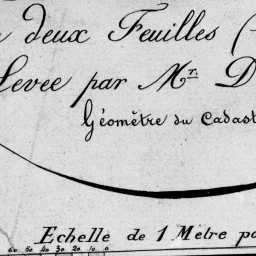 deux Feuilles (
Levée par Mr. D
Géomètre du Cadast
Echelle de 1 Metre po
60 50 40 30 20 10 0